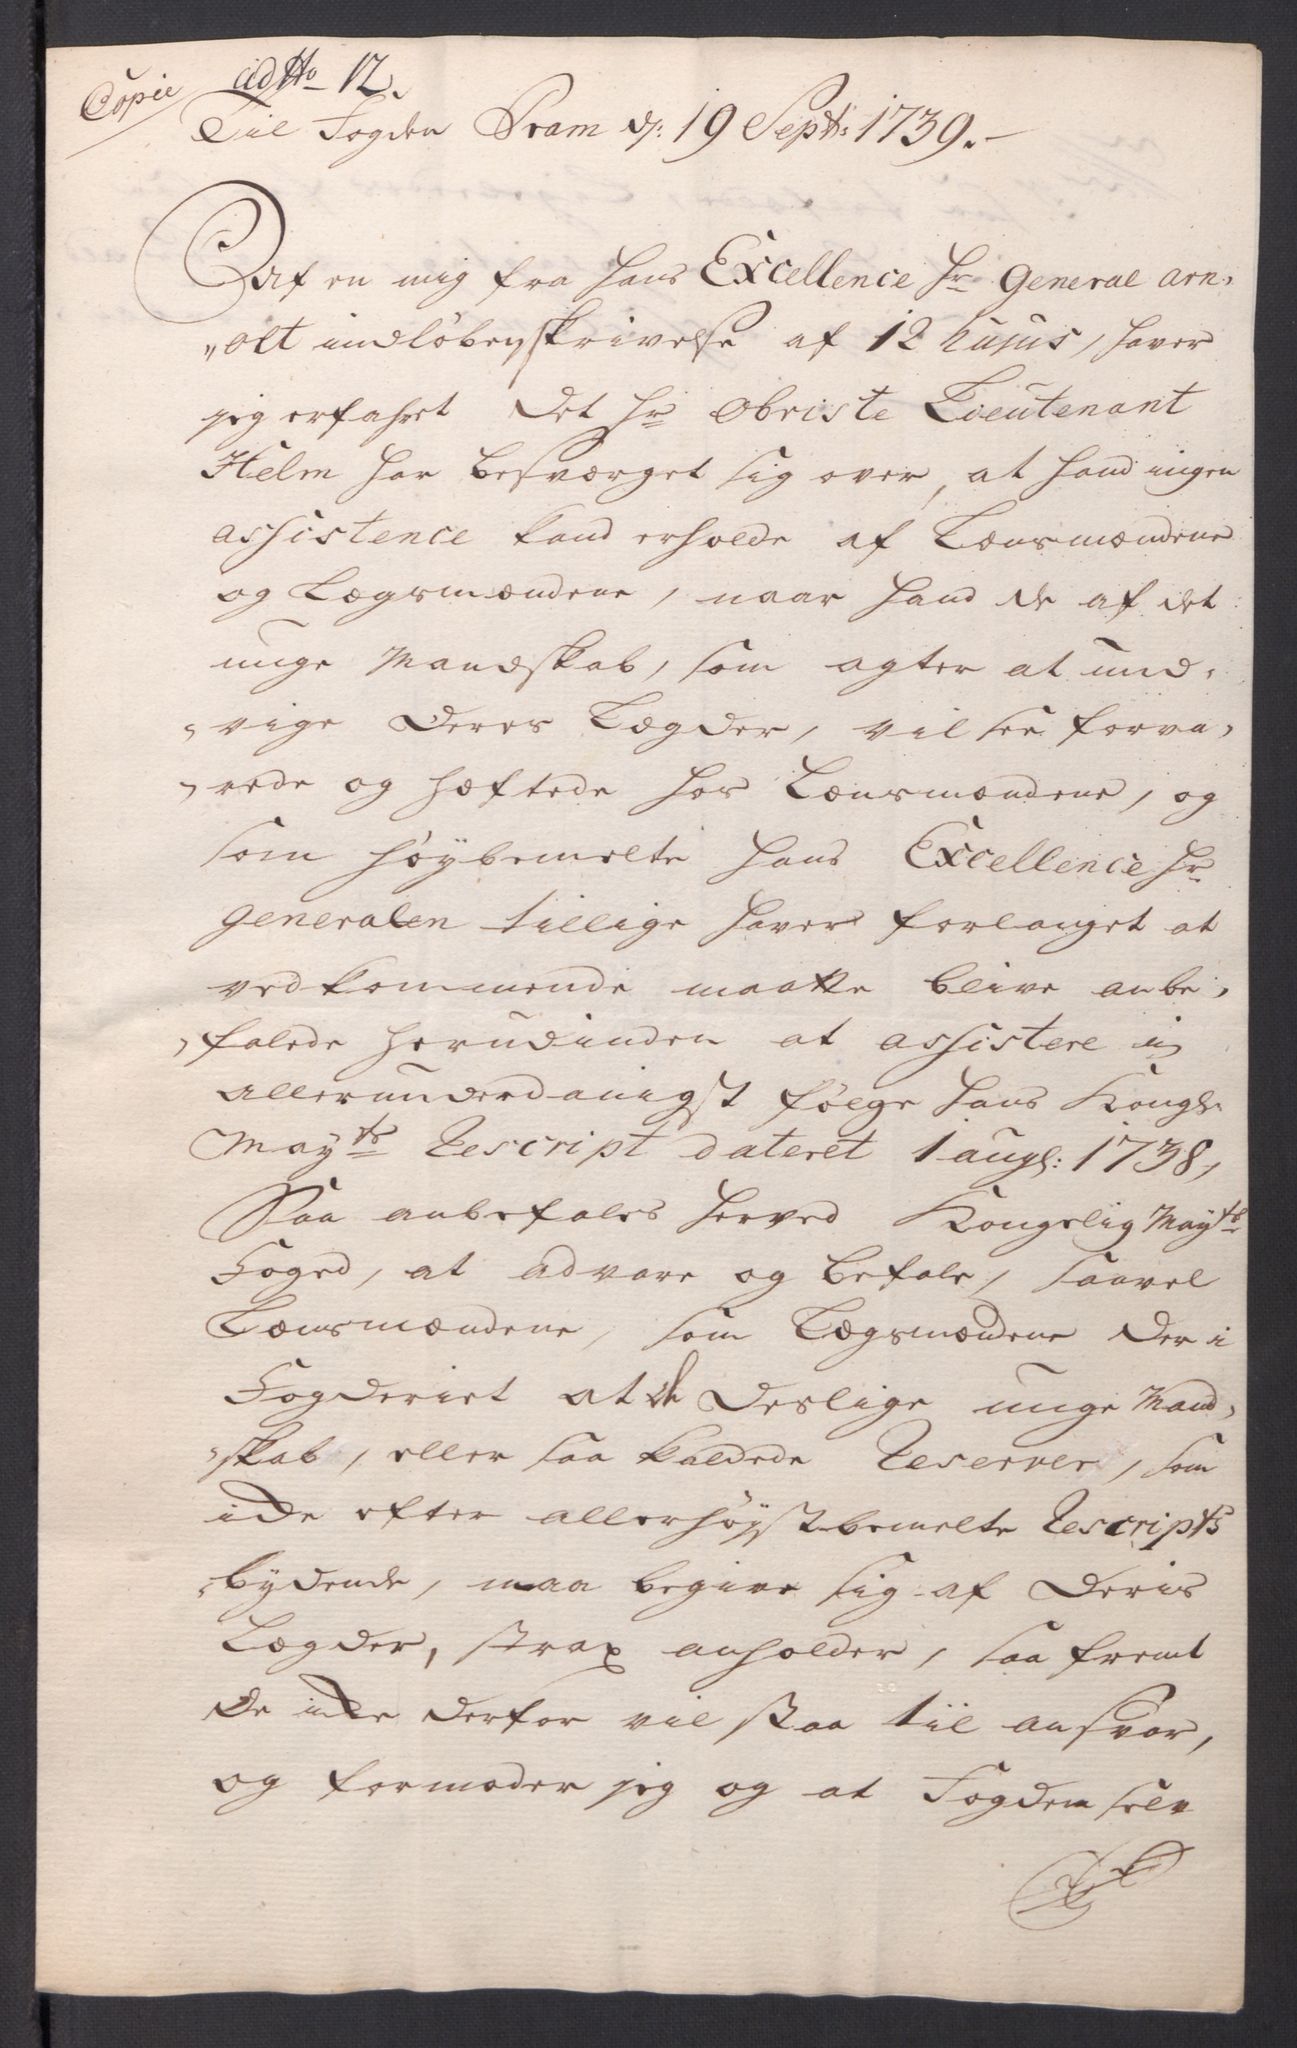 Copie
ad No 12.
Til Fogden Pram d: 19 Septb: 1739.-
Af en mig fra Hans Excellence Hr General Arn,
„olt indløben skrivelse af 12 hujus, haver
jeg erfahret det Hr Obriste Lieutenant
Helm har besværget sig over, at hand ingen
assistence kand erholde af Lænsmændene
og Lægsmændene, naar hand de af det
unge Mandskab, som agter at und,
,vige deres Lægder, vil see forva,
,rede og hæftede hos Lænsmændene, og
som høybemelte Hans Excellence Hr
Generalen tillige haver forlanget at
vedkommende maatte blive anbe,
,falede herudinden at assistere i
allerunderdanigst følge Hans Kongl:
Mayts Rescript dateret 1 augl: 1738,
Saa anbefales herved Kongelig Mayts
Foged, at advare og befale, saavel
Lænsmændene, som Lægsmændene der i
Fogderiet at de deslige unge Mand,
,skab, eller saa kaldede Reserver, som
icke efter allerhøyst bemelte Rescripts
bydende, maa begive sig af deris
Lægder, strax anholder, saa fremt
de icke derfor vil staa til ansvar,
og formoder jeg og at Fogden selv